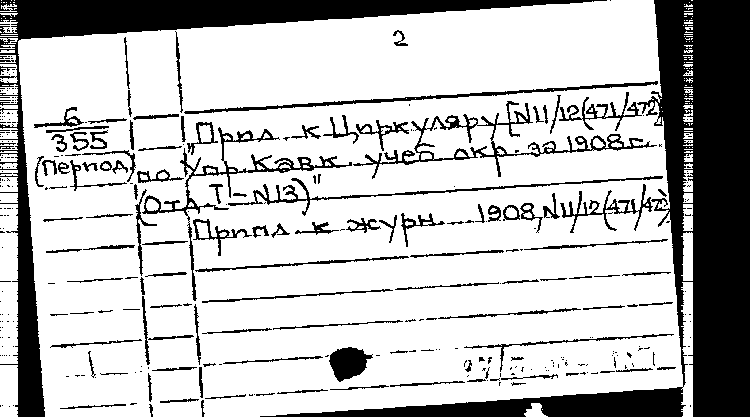 2
6
355
(Период)
"Прил. к Циркуляру [N11/12(471/472)]
по Упр. Кавк. учеб окр. за 1908 г.
(Отд. I-N13)"
Прил. к журн. 1908, N11/12(471/472)